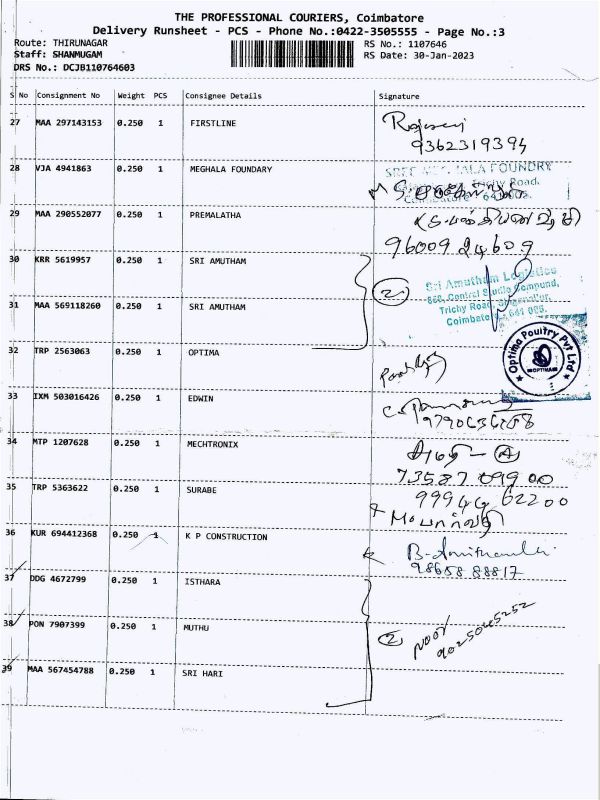 THE PROFESSIONAL COURIERS, Coimbatore
Delivery Runsheet - PCS - Phone No.:0422-3505555 - Page No.:3
Route: THIRUNAGAR
RS No.: 1107646
Staff: SHANMUGAM
RS Date: 30-Jan-2023
DRS No.: DCJB110764603
S No Consignment No Weight PCS Consignee Details Signature
27 MAA 297143153 0.250 1 FIRSTLINE
9362319394
28 VJA 4941863 0.250 1 MEGHALA FOUNDARY
FOUNDRY
Trichy Road,
29 MAA 290552077 0.250 1 PREMALATHA
96009 24609
30 KRR 5619957 0.250 1 SRI AMUTHAM
2
Sri Amutham Logistics
868, Central Studio Compund,
31 MAA 569118260 0.250 1 SRI AMUTHAM
Trichy Road,
Coimbatore 641 005.
32 TRP 2563063 0.250 1 OPTIMA
Optima Poultry Pvt Ltd
OPTIMA
33 IXM 503016426 0.250 1 EDWIN
34 MTP 1207628 0.250 1 MECHTRONIX
73587 09900
35 TRP 5363622 0.250 1 SURABE
99944 62200
36 KUR 694412368 0.250 1 K P CONSTRUCTION
98658 88817
37 DDG 4672799 0.250 1 ISTHARA
38 PON 7907399 0.250 1 MUTHU
2
Noor
9025045252
39 MAA 567454788 0.250 1 SRI HARI